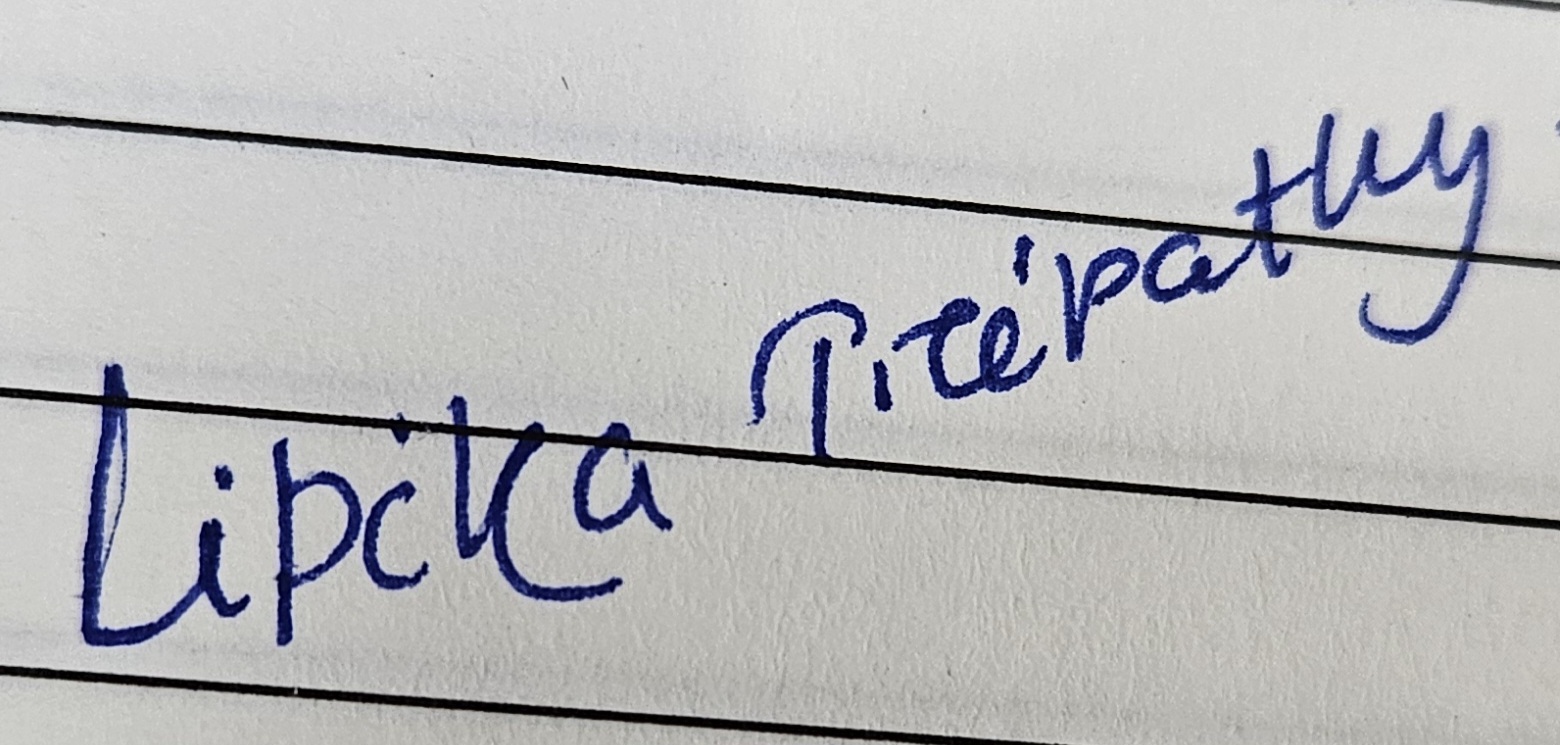 Lipika Tripathy